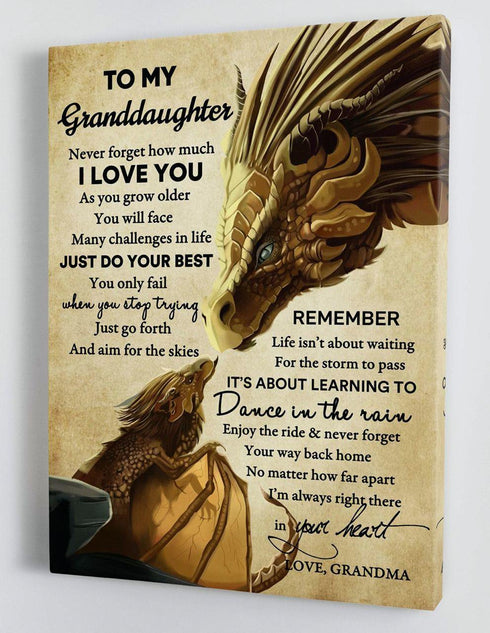 TO MY
Granddaughter
Never forget how much
I LOVE YOU
As you grow older
You will face
Many challenges in life
JUST DO YOUR BEST
You only fail
when you stop trying
Just go forth
And aim for the skies
REMEMBER
Life isn't about waiting
For the storm to pass
IT'S ABOUT LEARNING TO
Dance in the rain
Enjoy the ride & never forget
Your way back home
No matter how far apart
I'm always right there
in your heart
LOVE, GRANDMA